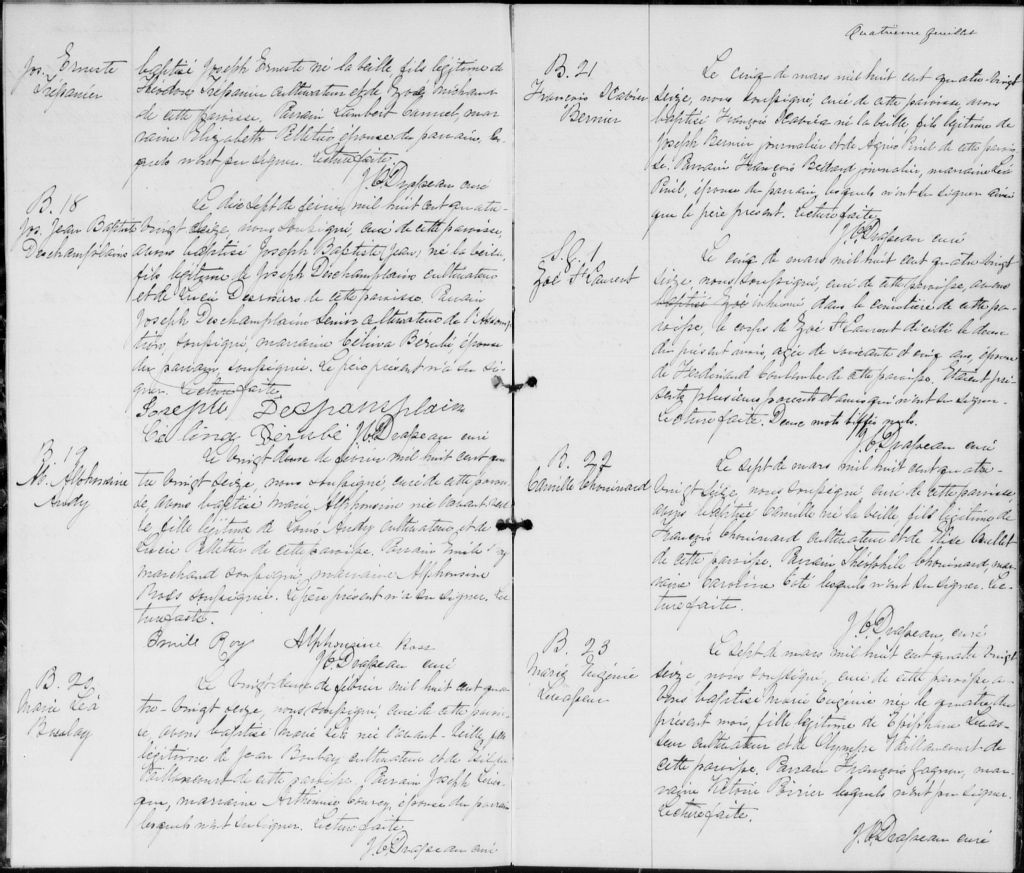 Jos. Erneste
Trépanier
baptisé Joseph Erneste né la veille, fils légitime de
Théodore Trépanier cultivateur et de Zoé Michaud
de cette paroisse. Parrain Lambert Canuel, mar-
raine Elizabeth Pelletier épouse du parrain, les-
quels n'ont su signer. Lecture faite.
J. O. Drapeau curé
B. 18
Jos. Jean Baptiste
Deschamplains
Le dix sept de février mil huit cent quatre-
vingt seize, nous soussigné, curé de cette paroisse,
avons baptisé Joseph Baptiste Jean, né la veille,
fils légitime de Joseph Deschamplains cultivateur
et de Lucie Desrosiers de cette paroisse. Parrain
Joseph Deschamplains senior cultivateur de l'Assomp-
tion, soussigné, marraine Célina Bérubé, épouse
du parrain, soussignée. Le père présent n'a su si-
gner. Lecture faite.
Joseph Deschamplain
Célina Bérubé J. O. Drapeau curé
B. 19
M. Alphonsine
Audy
Le vingt deux de février mil huit cent qua-
tre vingt seize, nous soussigné, curé de cette parois-
se, avons baptisé Marie Alphonsine née l'avant veil-
le fille légitime de Louis Audy cultivateur, et de
Lucie Pelletier de cette paroisse. Parrain Emile Roy
marchand soussigné, marraine Alphonsine
Ross soussignée. Le père présent n'a su signer. Lec-
ture faite.
Emile Roy Alphonsine Ross
J. O. Drapeau curé
B. 20
Marie Léa
Boulay
Le vingt deux de février mil huit cent qua-
tre-vingt seize, nous soussigné, curé de cette parois-
se avons baptisé Marie Léa née l'avant-veille, fille
légitime de Jean Boulay cultivateur et de
Vaillancourt de cette paroisse. Parrain Joseph
marraine Arthémise épouse du parrain
lesquels n'ont su signer. Lecture faite.
J. O. Drapeau curé
Quatrième feuillet
B. 21
François Xavier
Bernier
Le cinq de mars mil huit cent quatre vingt
seize, nous soussigné, curé de cette paroisse, avons
baptisé François Xavier né la veille, fils légitime de
Joseph Bernier journalier et de Agnès Ruel de cette parois-
se. Parrain François Bédard journalier, marraine Léa
Ruel, épouse du parrain, lesquels n'ont su signer ainsi
que le père présent. Lecture faite.
J. O. Drapeau curé
S. 1
Zoé St Laurent
Le cinq de mars mil huit cent quatre vingt
seize, nous soussigné, curé de cette paroisse, avons
baptisé Zoé inhumé dans le cimetière de cette pa-
roisse, le corps de Zoé St Laurent décédée le deux
du présent mois, agée de soixante et cinq ans, épouse
de Ferdinand Coulombe de cette paroisse. Etaient pré-
sents plusieurs parents et amis qui n'ont su signer.
Lecture faite. Deux mots biffés nuls.
J. O. Drapeau curé
B. 22
Camille Chouinard
Le sept de mars mil huit cent quatre-
vingt seize, nous soussigné, curé de cette paroisse,
avons baptisé Camille né la veille, fils légitime de
François Chouinard cultivateur et de Elise Ouellet
de cette paroisse. Parrain Théophile Chouinard, mar-
raine Caroline Coté lesquels n'ont su signer. Lec-
ture faite.
J. O. Drapeau, curé
B. 23
Marie Eugénie
Levasseur
Le sept de mars mil huit cent quatre vingt
seize, nous soussigné, curé de cette paroisse a-
vons baptisé Marie Eugénie née le quatre du
présent mois, fille légitime de Epiphane Levas-
seur cultivateur et de Olympe Vaillancourt de
cette paroisse. Parrain François Gagnon, mar-
raine Victoire Poirier lesquels n'ont su signer.
Lecture faite.
J. O. Drapeau curé